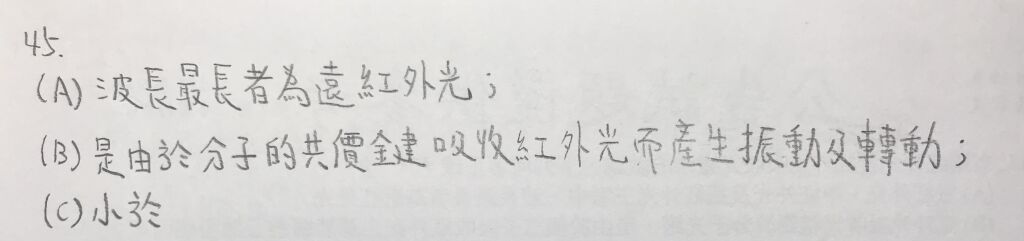 45.
(A) 波長最長者為遠紅外光；
(B) 是由於分子的共價鍵吸收紅外光而產生振動及轉動；
(C) 小於